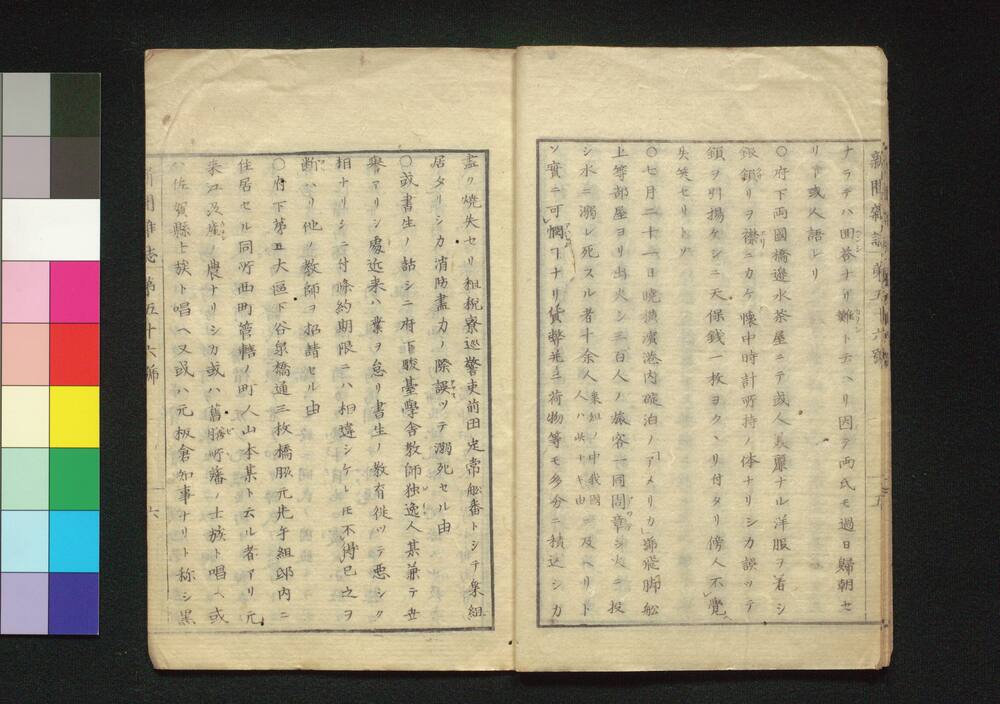 新聞雑誌 第五十六號 五
ナラデハ囬答ナリ難シト云ヘリ因テ両氏モ過日歸朝セ
リト或人語レリ
○府下両國橋邊水茶屋ニテ或人美麗ナル洋服ヲ着シ
銀鎖リヲ襟ニカケ懐中時計所持ノ体ナリシカ誤ツテ
鎖ヲ引揚ケシニ天保錢一枚ヨクヽリ付タリ傍人不覺
失笑セリトソ
○七月二十一日曉横濱港内碇泊ノアメリカ郵飛脚舩
上等部屋ヨリ出火シ三百人ノ旅客一同周章シ火ニ投
シ水ニ溺レ死スル者十余人 乗組ノ中我國人ハ此ナキ由 ニ及ヘリト
ソ實ニ可憫ヿナリ貨幣并ニ荷物等モ多分ニ積込シカ
盡ク燒失セリ租税寮巡警吏前田定常舩番トシテ乗組
居タリシカ消防盡力ノ際誤ツテ溺死セル由
○或書生ノ話シニ府下駿臺學舎教師独逸人某兼テ世
譽アリシ處近来ハ業ヲ怠リ書生ノ教育徙ツテ悪シク
相ナリシニ付條約期限ニハ相違シケレ𪜈不得已之ヲ
断ハリ他ノ教師ヲ招請セル由
○府下第五大區下谷泉橋通三枚橋脇元廾午組邸内ニ
住居セル同所西町管轄ノ町人山本某ト云ル者アリ元
来江及産ノ農ナリシカ或ハ舊膳所藩ノ士族ト唱ヘ或
ハ佐賀縣士族ト唱ヘ又或ハ元板倉知事ナリト称シ黒
新聞雑志 第五十六號 六